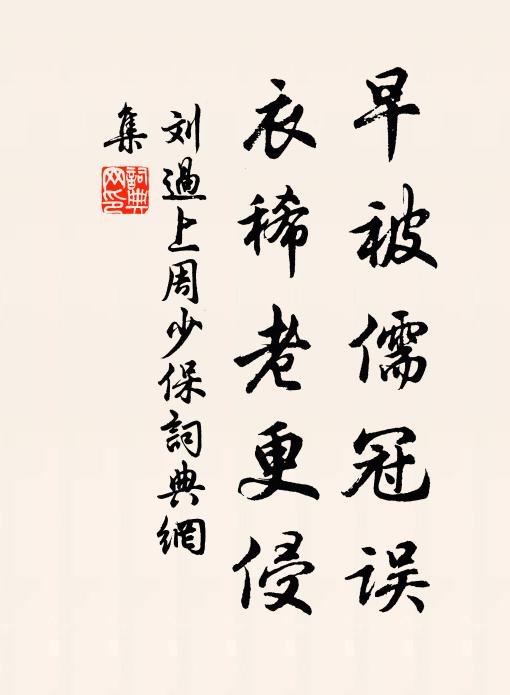 早被儒冠误
衣稀老更侵
刘過上周少保詞典網
集
詞典
网印